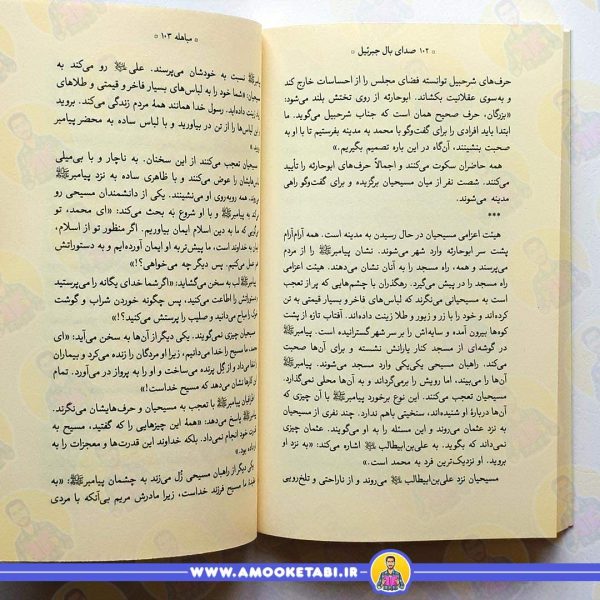 ۱۰۲ صدای بال جبرئیل
حرف‌های شرحبیل توانسته فضای مجلس را از احساسات خارج کند
و به‌سوی عقلانیت بکشاند. ابوحارثه از روی تختش بلند می‌شود:
«بزرگان، حرف صحیح همان است که جناب شرحبیل می‌گوید. ما
ابتدا باید افرادی را برای گفت‌وگو با محمد به مدینه بفرستیم تا با او
صحبت بنشینند، آن‌گاه در این باره تصمیم بگیریم.»
همه حاضران سکوت می‌کنند و اجمالاً حرف‌های ابوحارثه را تأیید
می‌کنند. شصت نفر از میان مسیحیان برگزیده و برای گفت‌وگو راهی
مدینه می‌شوند.
***
هیئت اعزامی مسیحیان در حال رسیدن به مدینه است. همه آرام‌آرام
پشت سر ابوحارثه وارد شهر می‌شوند. نشان پیامبرﷺ را از مردم
می‌پرسند و همه، راه مسجد را به آنان نشان می‌دهند. هیئت اعزامی
راه مسجد را در پیش می‌گیرد. رهگذران با چشم‌هایی که پر از تعجب
است به مسیحیانی می‌نگرند که لباس‌های فاخر و بسیار قیمتی به تن
کرده‌اند و خود را با زر و زیور و طلا زینت داده‌اند. آفتاب تازه از پشت
کوه‌ها بیرون آمده و سایه‌اش را بر سر شهر گسترانیده است. پیامبرﷺ
در گوشه‌ای از مسجد کنار یارانش نشسته و برای آن‌ها صحبت
می‌کند. راهبان مسیحی یکی‌یکی وارد مسجد می‌شوند. پیامبرﷺ
آن‌ها را می‌بیند، اما رویش را برمی‌گرداند و به آن‌ها محلی نمی‌گذارد.
مسیحیان تعجب می‌کنند. این نوع برخورد پیامبرﷺ با آن چیزی که
آن‌ها دربارهٔ او شنیده‌اند، سنخیتی باهم ندارد. چند نفری از مسیحیان
به نزد عثمان می‌روند و این مسئله را به او می‌گویند. عثمان چیزی
نمی‌داند که بگوید. به علی‌بن‌ابیطالب اشاره می‌کند: «به نزد او
بروید. او نزدیک‌ترین فرد به محمد است.»
مسیحیان نزد علی‌بن‌ابیطالب می‌روند و از ناراحتی و تلخ‌رویی
مباهله ۱۰۳
پیامبرﷺ نسبت به خودشان می‌پرسند. علی رو می‌کند به
مسیحیان: «شما خود را به لباس‌های بسیار فاخر و قیمتی و طلاهای
زینت داده‌اید. رسول خدا همانند همه مردم زندگی می‌کند. بروید
لباس‌ها را از تن در بیاورید و با لباس ساده به محضر پیامبر
مسیحیان تعجب می‌کنند از این سخنان. به ناچار و با بی‌میلی
را عوض می‌کنند و با ظاهری ساده به نزد پیامبرﷺ
همه روبه‌روی او می‌نشینند. یکی از دانشمندان مسیحی رو
به پیامبرﷺ و با او شروع به بحث می‌کند: «ای محمد، تو
که ما به دین اسلام ایمان بیاوریم. اگر منظور تو از اسلام،
به خداوند است، ما پیش‌تر به او ایمان آورده‌ایم و به دستوراتش
عمل می‌کنیم. پس دیگر چه می‌خواهی؟!»
لب به سخن می‌گشاید: «اگر شما خدای یگانه را می‌پرستید
را اطاعت می‌کنید، پس چگونه خوردن شراب و گوشت
را انجام می‌دهید و صلیب را پرستش می‌کنید؟!»
مسیحیان چیزی نمی‌گویند. یکی دیگر از آن‌ها به سخن می‌آید: «ای
ما مسیح را خدا می‌دانیم، زیرا او مردگان را زنده می‌کرد و بیماران
می‌داد و از گل پرنده می‌ساخت و او را به پرواز در می‌آورد. تمام
نشان می‌دهد که مسیح خدا است!»
اطرافیان پیامبر با تعجب به مسیحیان و حرف‌هایشان می‌نگرند.
پیامبرﷺ پاسخ می‌دهد: «همه این چیزهایی را که گفتید، مسیح به
قدرت خود انجام نمی‌داد. بلکه خداوند این قدرت‌ها و معجزات را به
داده بود.»
یکی دیگر از راهبان مسیحی زُل می‌زند به چشمان پیامبرﷺ: «به
ما مسیح فرزند خداست، زیرا مادرش مریم بی‌آنکه با مردی
WWW.AMOOKETABI.IR